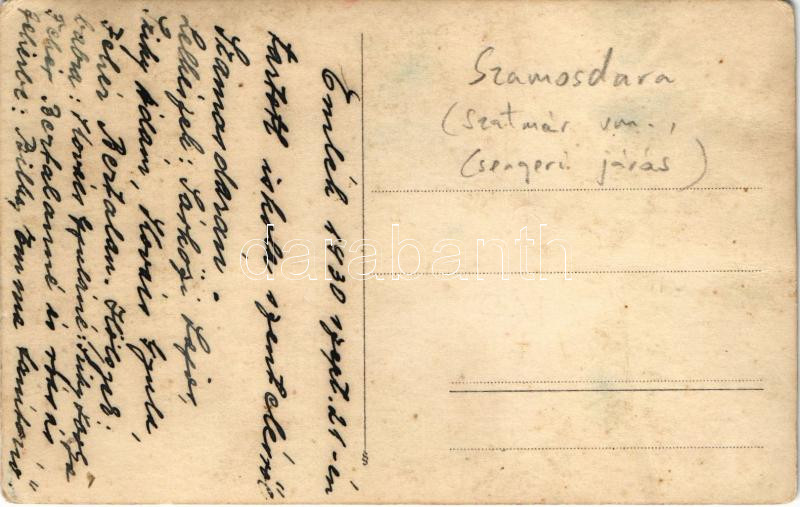 Emlék 1930 szept. 21-én
tartott iskola szentelésről
Szamosdarán.
Lelkészek: Sárközi Lajos,
Szűky Ádám, Kovács Gyula,
Fehér Bertalan. Hölgyek:
Kovács Gyuláné,
Fehér Bertalanné és
fehérbe: Emma tanítónő."
Szamosdara
(Szatmár vm.,
csengeri járás)
darabanth